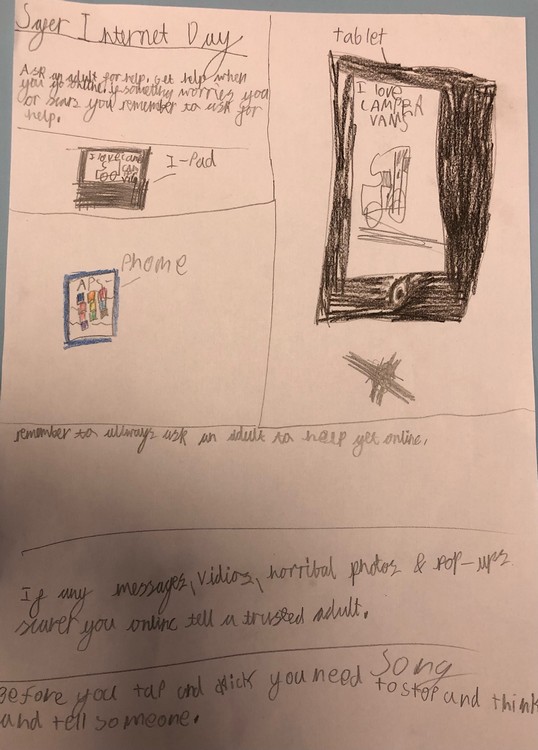 Safer Internet Day
Ask an adult for help. Get help when
you go online. if something worries you
or scars you remember to ask for
help.
I-Pad
I love
Phone
APS
tablet
I love
CAMPER
VANS
remember to allways ask an adult to help get online.
If any messages, vidios, horribal photos & pop-ups
scarer you online tell a trusted adult.
Song
Before you tap and click you need to stop and think
and tell someone.